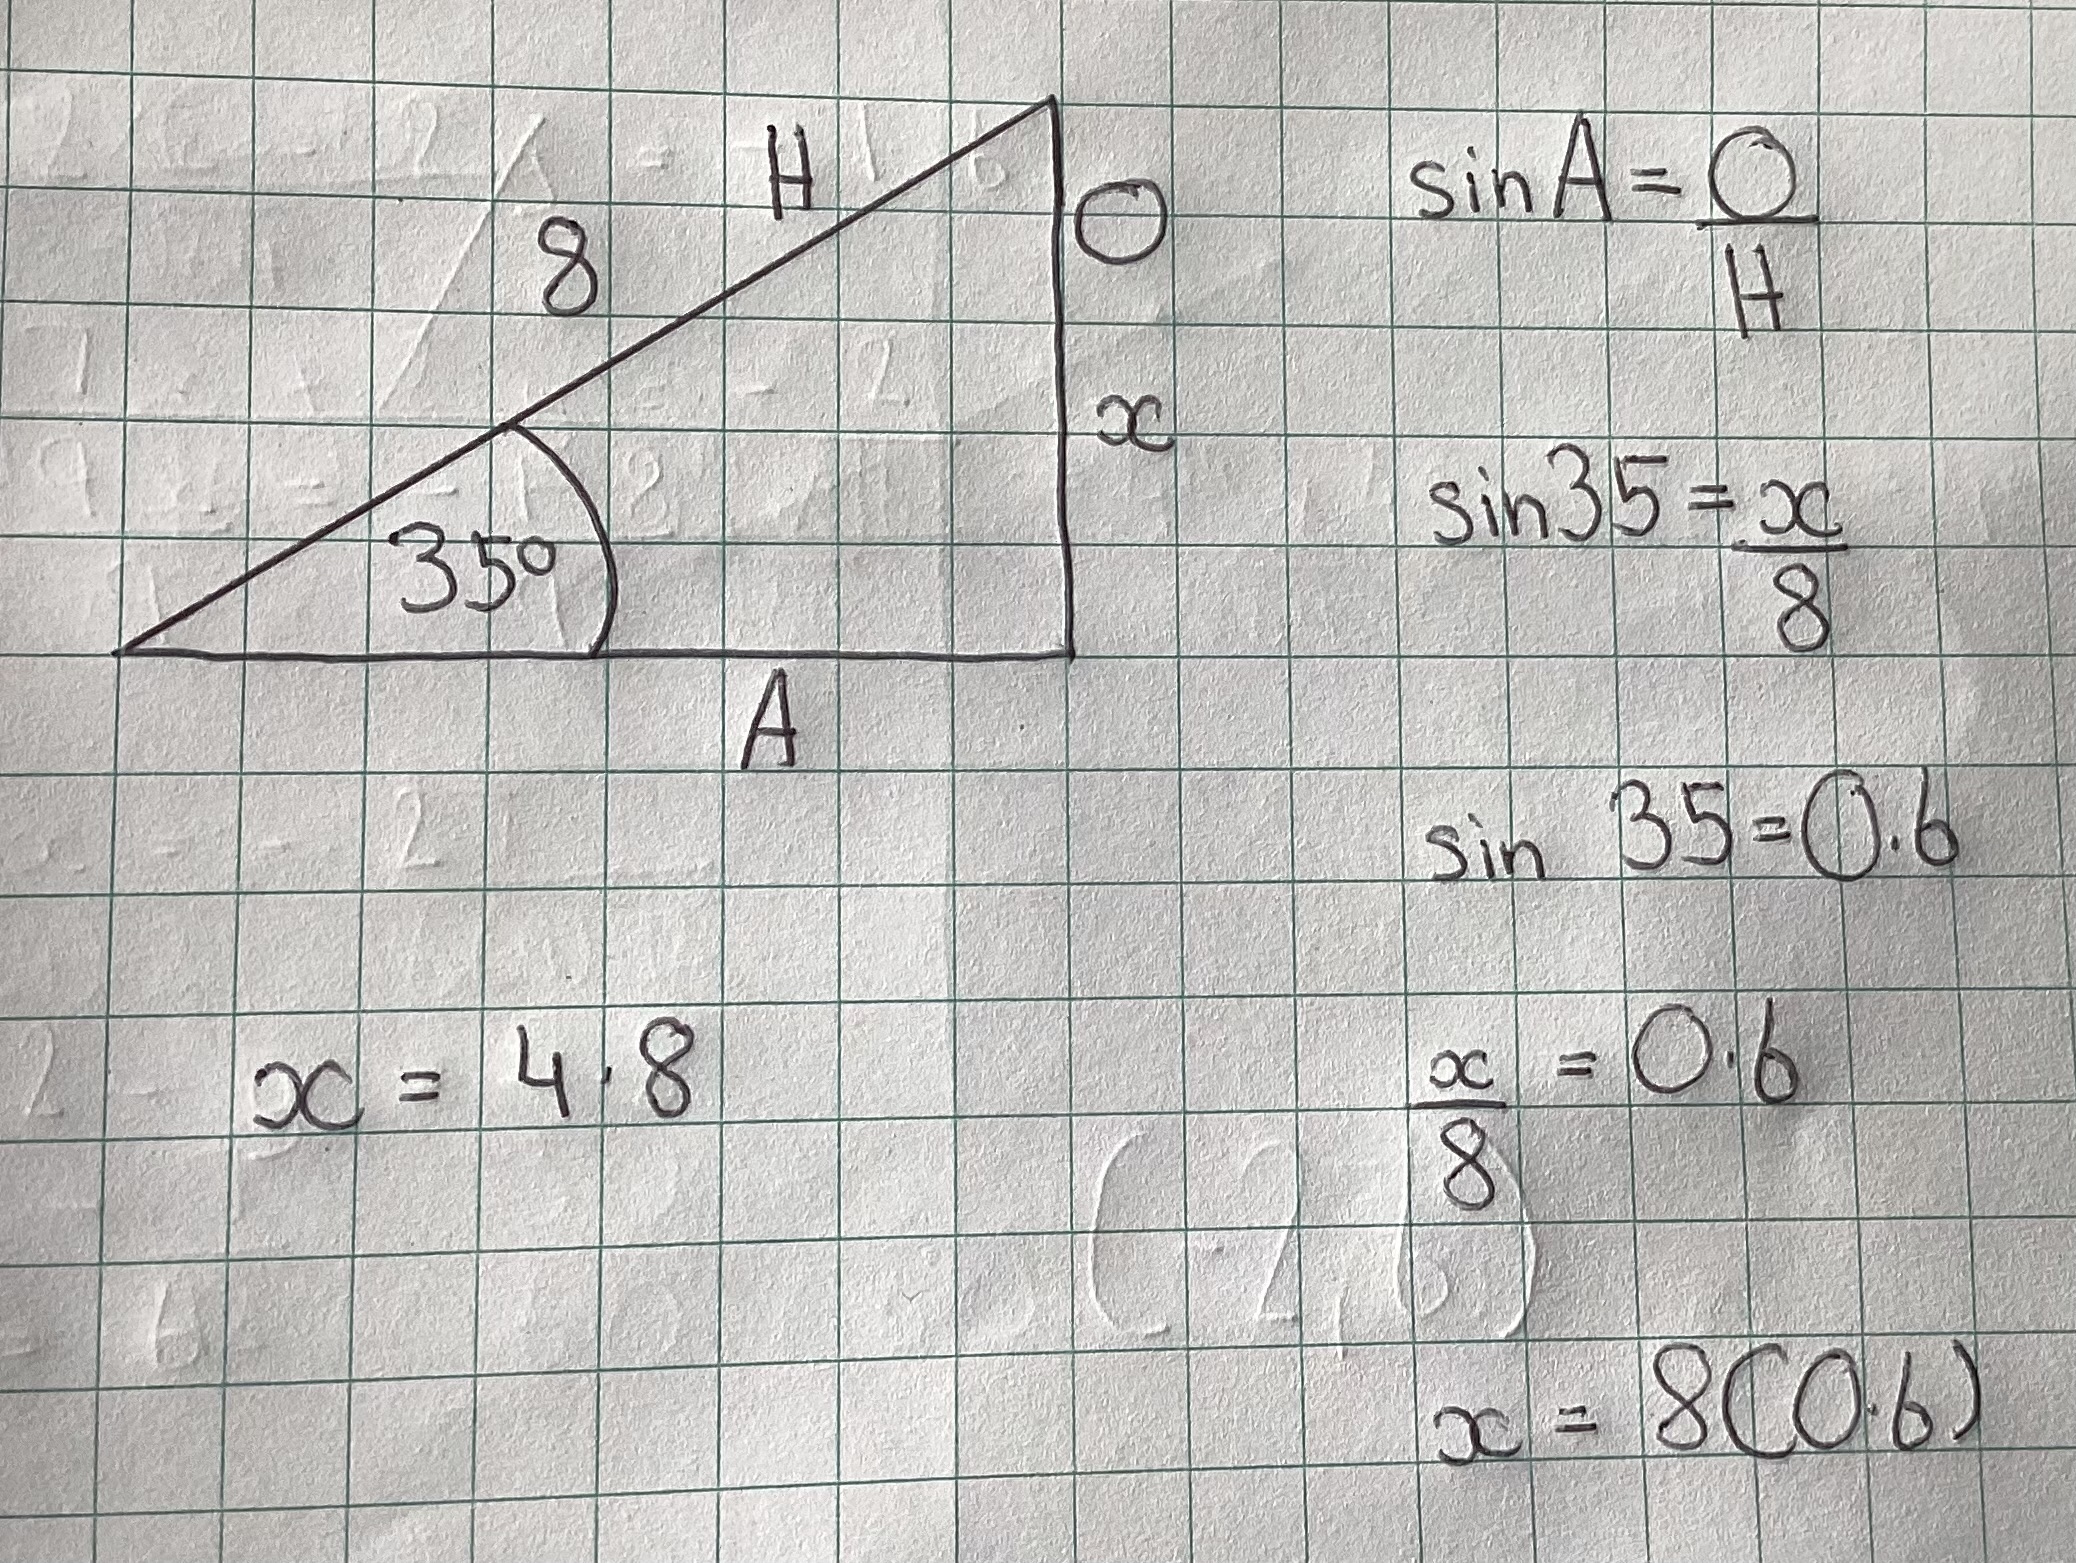 H
8
O
x
35°
A
sin A = O/H
sin 35 = x/8
sin 35 = 0.6
x/8 = 0.6
x = 8(0.6)
x = 4.8